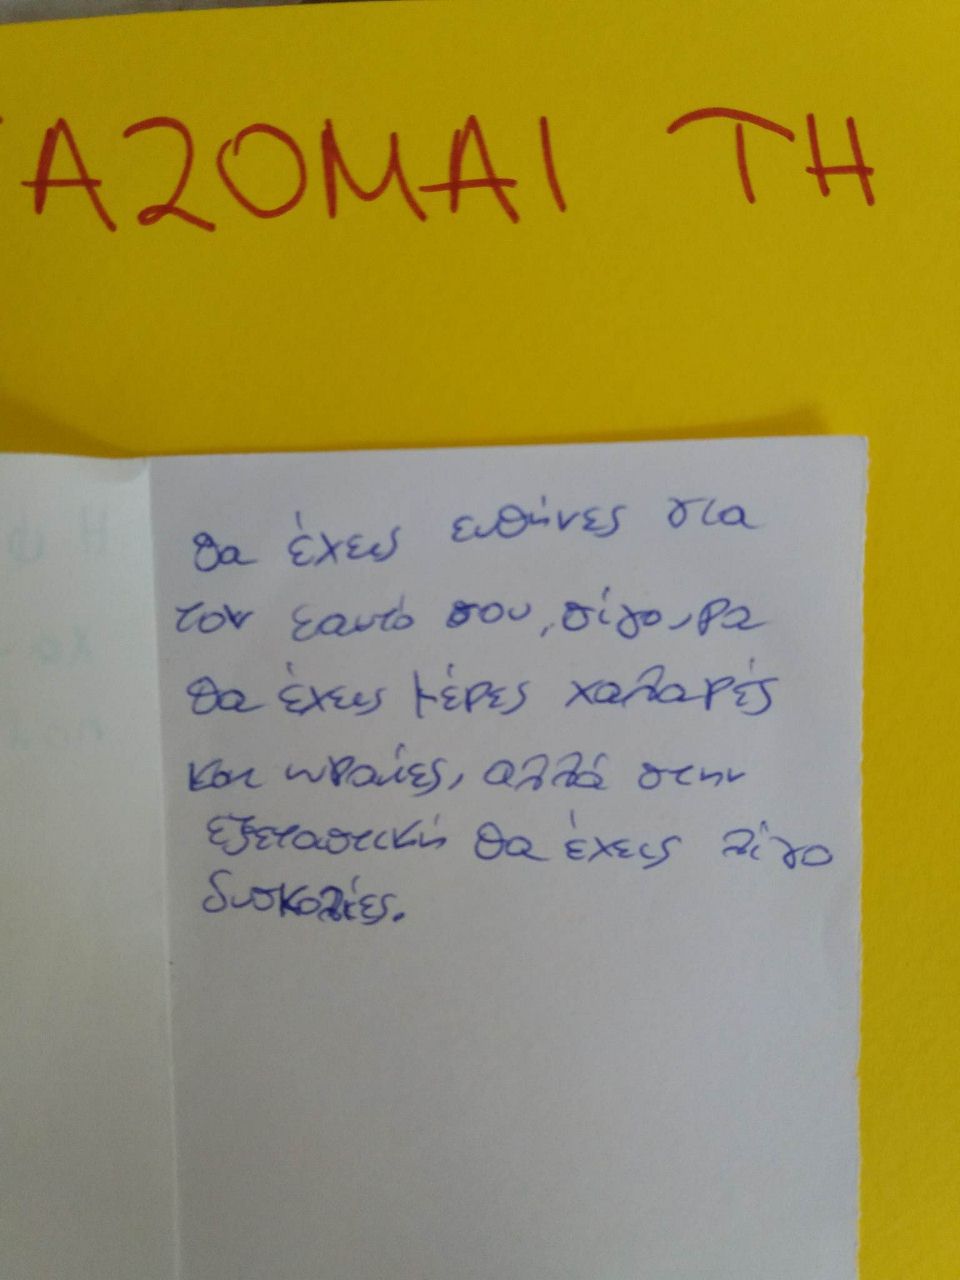 ΑΖΟΜΑΙ ΤΗ
θα έχεις ευθήνες για
τον εαυτό σου, σίγουρα
θα έχεις μέρες χαλαρές
και ωραίες, αλλά στην
εξεταστική θα έχεις λίγο
δυσκολίες.